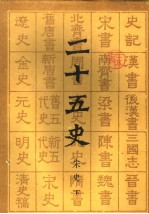 史記 漢書 後漢書 三國志 晉書
宋書 南齊書 梁書 陳書 魏書
北齊
二十五史
宋史下
舊唐書 新唐書 舊五代史 新五代史 宋史
遼史 金史 元史 明史 清史稿